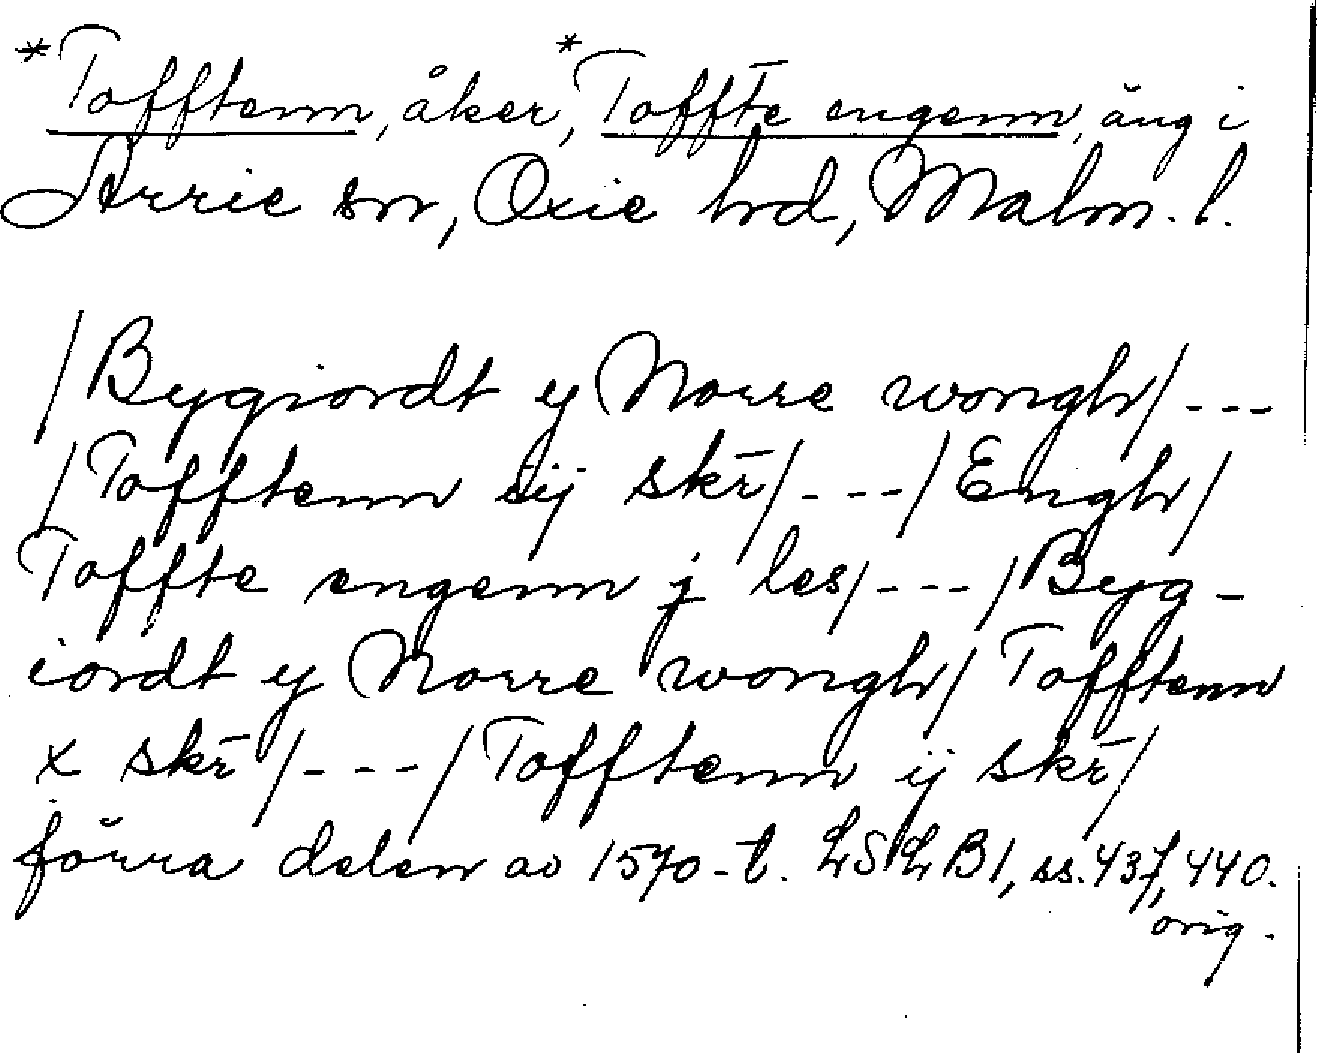 *Tofftenn, åker, *Toffte engenn, äng i
Arrie sn, Oxie hd, Malm. l.
/Bygiordt y Norre wongh/ ---
/Tofftenn iij skr̄/ --- /Engh/
Toffte engenn j les/ --- /Byg-
iordt y Norre wongh/ Tofftenn
x skr̄ / --- / Tofftenn ij skr̄/
förra delen av 1570-t. LSLB1, ss. 437, 440.
orig.